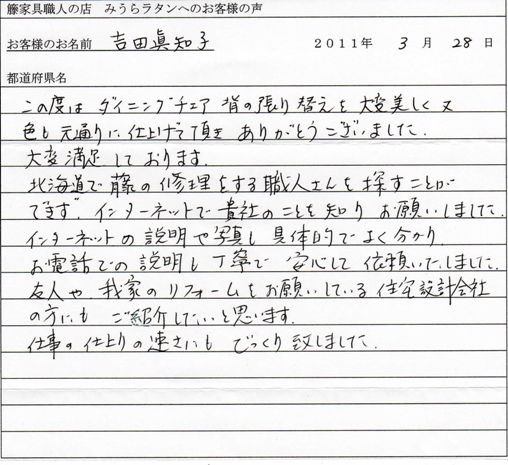 籐家具職人の店 みうらラタンへのお客様の声
お客様のお名前 吉田眞知子 2011年 3月 28日
都道府県名
この度は ダイニングチェア 背の張り替えを大変美しく又
色も元通りに仕上げて頂き ありがとうございました.
大変満足しております.
北海道で藤の修理をする職人さんを探すことが
できず. インターネットで貴社のことを知り お願いしました.
インターネットの説明や写真も具体的でよく分かり.
お電話での説明も丁寧で 安心して依頼いたしました.
友人や. 我家のリフォームをお願いしている住宅設計会社
の方にも ご紹介したいと思います.
仕事の仕上りの速さにも びっくり致しました.